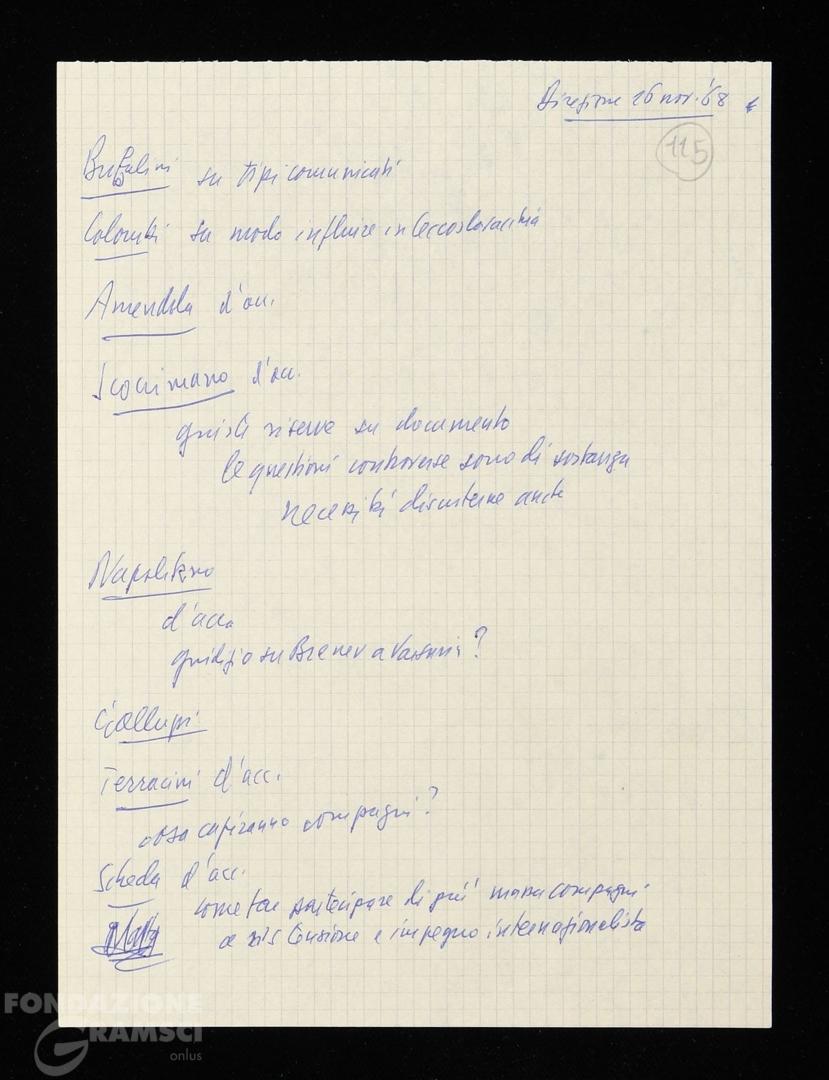 Direzione 26 nov. '68
115
Bufalini su tipi comunicati
Colombi su modo influire in Cecoslovacchia
Amendola d'acc.
Scoccimarro d'acc.
giuste riserve su documento
le questioni controverse sono di sostanza
necessità discuterne anche
Napolitano
d'acc.
giudizio su Breznev a Varsavia?
Galluzzi
Terracini d'acc.
cosa capiranno compagni?
Scheda d'acc.
come far partecipare di più massa compagni
a discussione e impegno internazionalista
FONDAZIONE
GRAMSCI
onlus